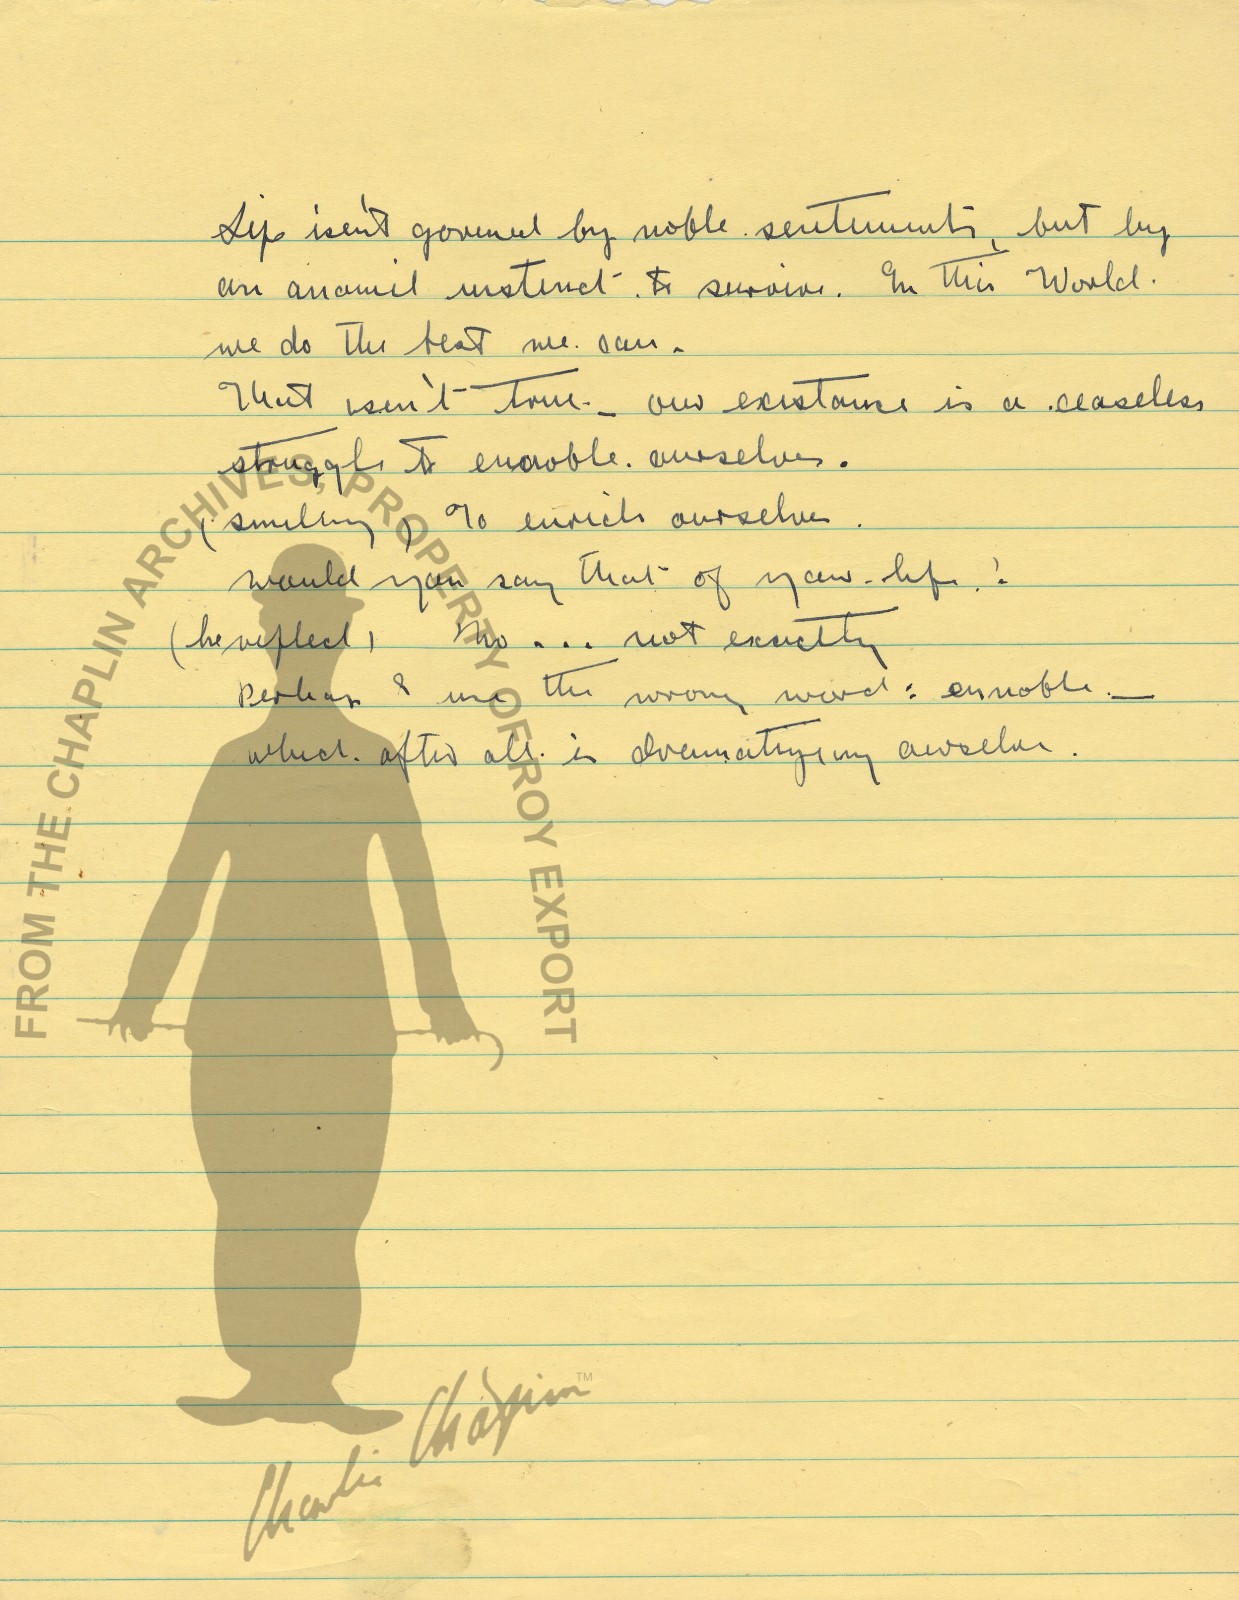 Life isn't governed by noble sentiments, but by
an anamil instinct to survive. In this World.
we do the best we can.
That isn't true – our existance is a ceaseless
struggle to ennoble ourselves.
(smiling) To enrich ourselves.
would you say that of your life?
(he reflects) No ... not exactly
Perhaps I use the wrong word: ennoble —
which after all is dramatizing ourselves.
FROM THE CHAPLIN ARCHIVES, PROPERTY OF ROY EXPORT
Charlie Chaplin™